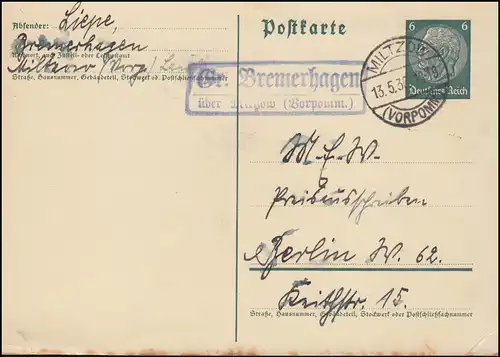 Absender: Liepe,
Bremerhagen
Wohnort, auch Zustell- oder Leitpostamt
Miltzow (Vorp)
Straße, Hausnummer, Gebäudeteil, Stockwerk od. Postschließfachnummer
Postkarte
6 6
Deutsches Reich
MILTZOW
13.5.3
(VORPOMM)
Gr. Bremerhagen
über Miltzow (Vorpomm.)
M. E. W.
Preisausschreiben
Berlin W. 62.
Keithstr. 15.
Straße, Hausnummer, Gebäudeteil, Stockwerk oder Postschließfachnummer